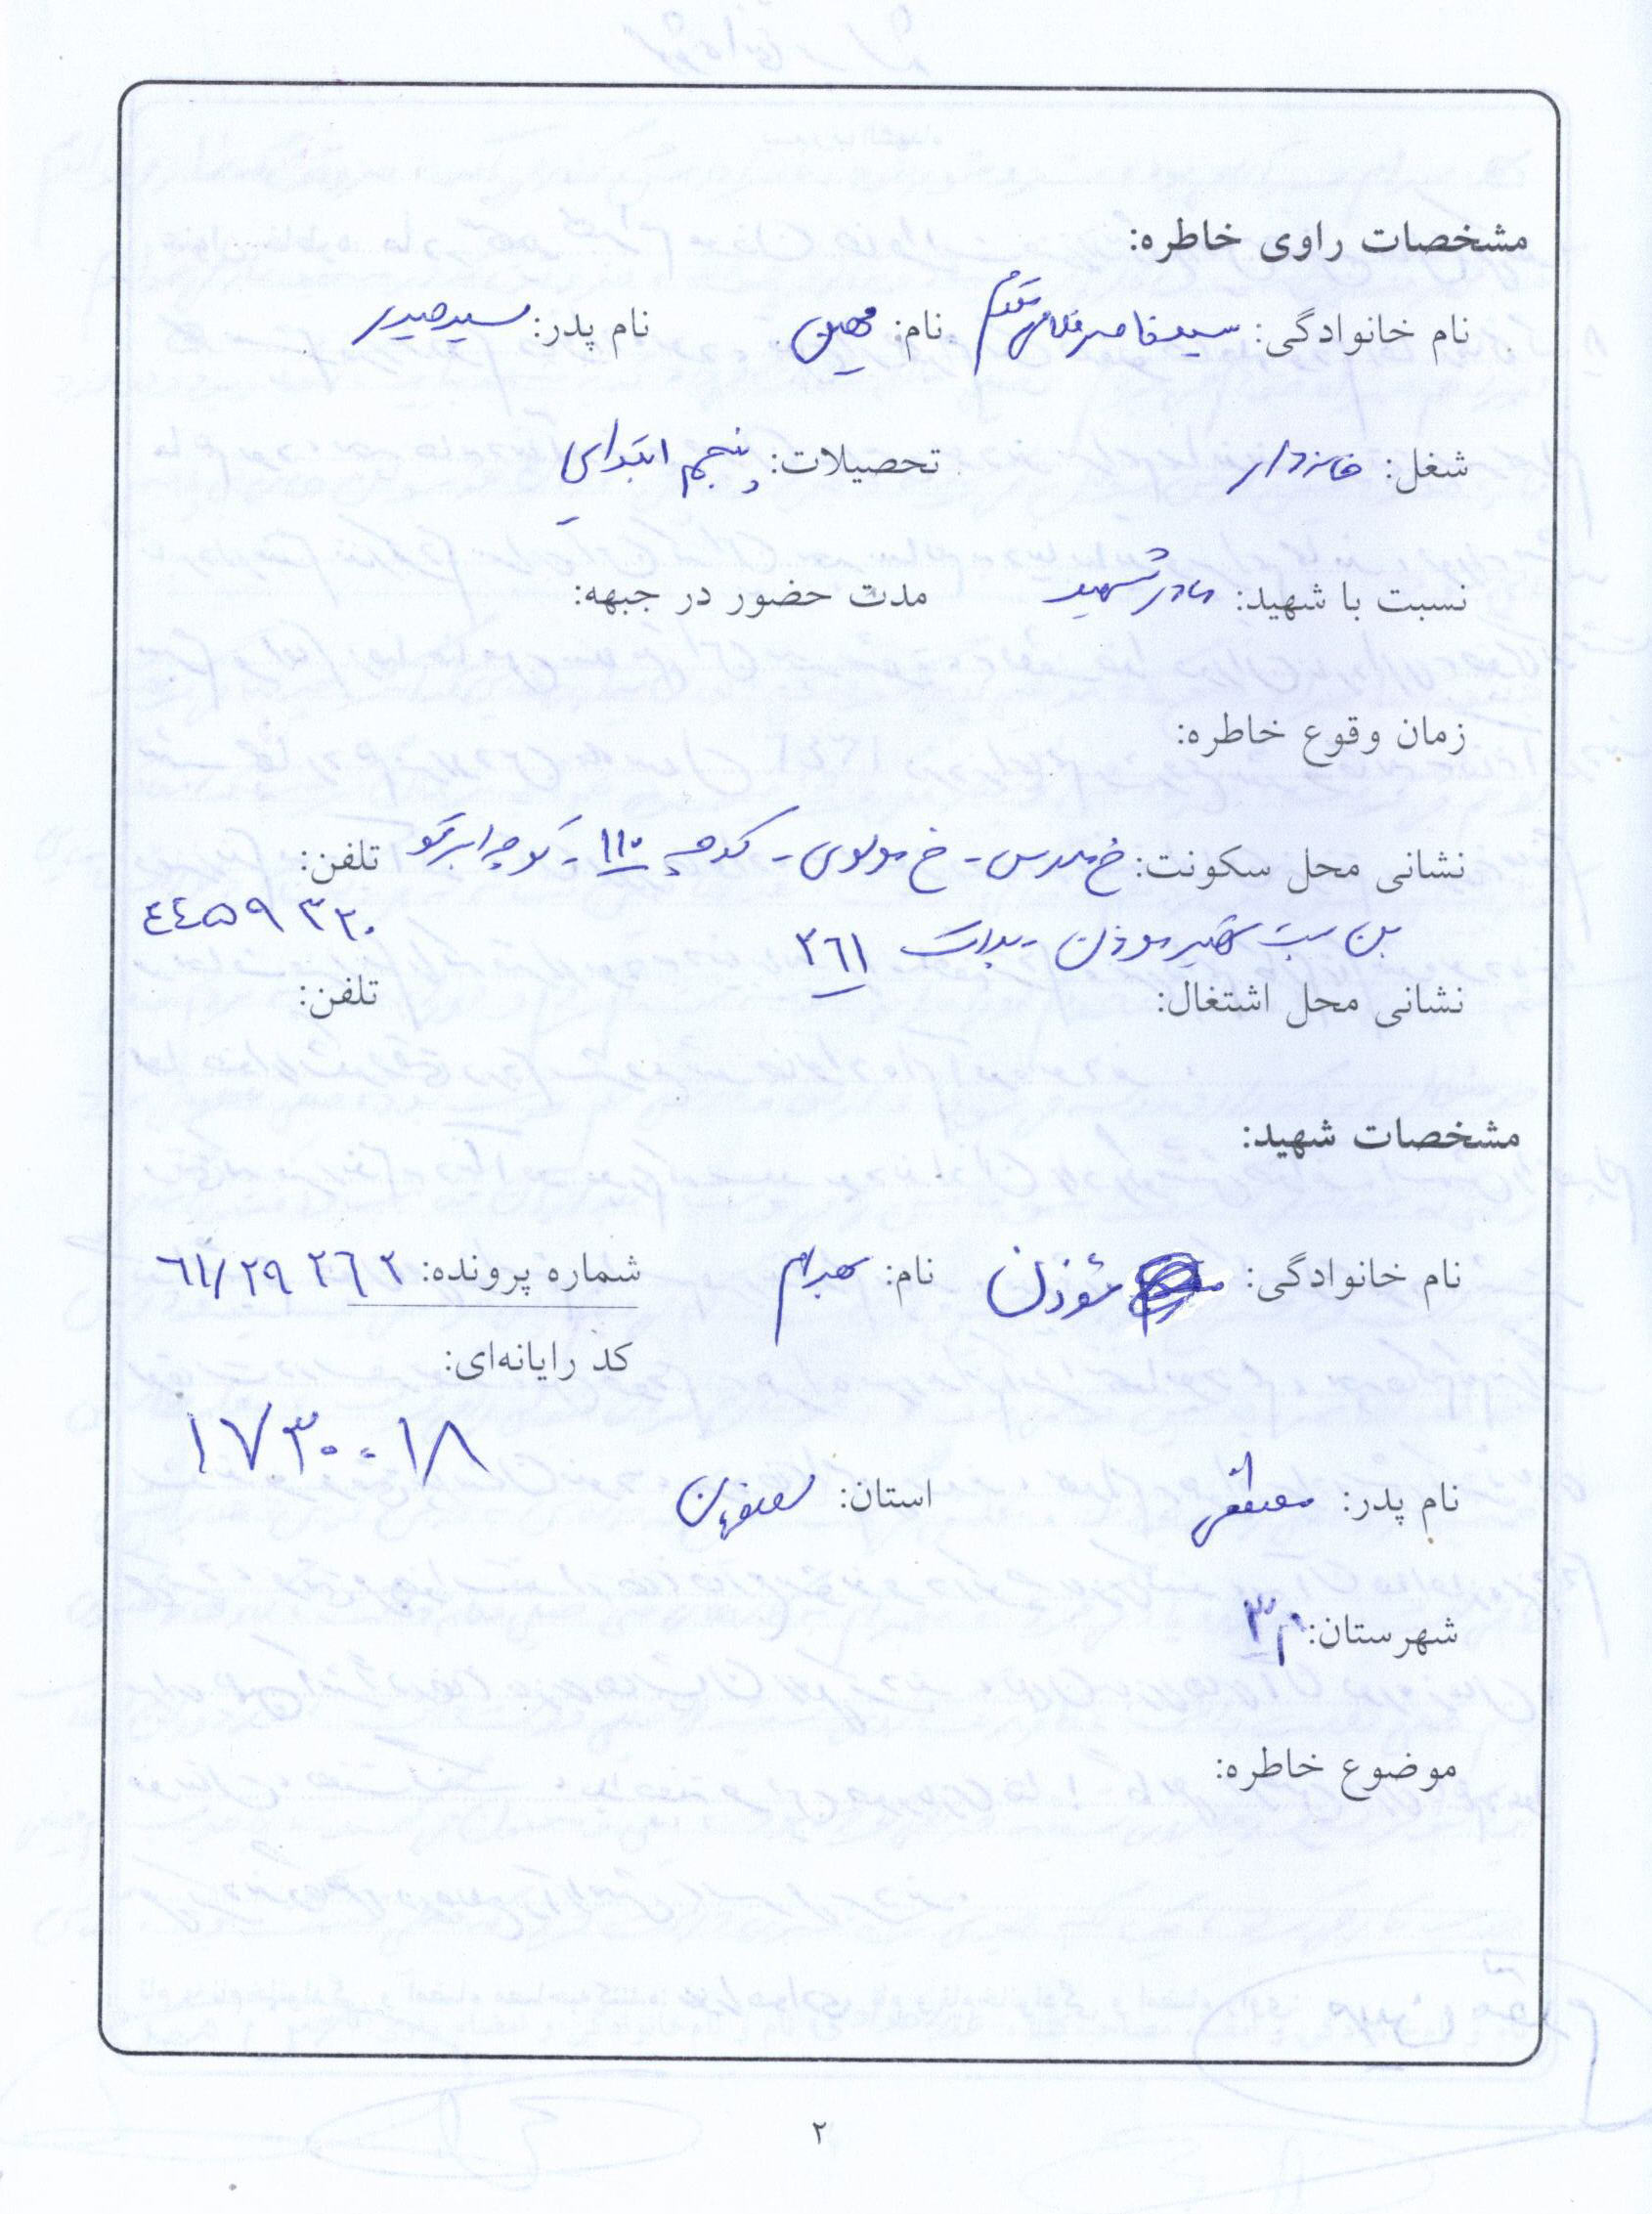 مشخصات راوی خاطره:
نام خانوادگی: نام: مهین نام پدر: سیدحیدر
شغل: خانه‌دار تحصیلات: پنجم ابتدایی
نسبت با شهید: مادر شهید مدت حضور در جبهه:
زمان وقوع خاطره:
نشانی محل سکونت: خ مدرس - خ مولوی - کوچه ۱۱۰ - کوچه تلفن:
بن بست شهید موذن - پلاک ۳۶۱ ۴۴۵۹۳۲۰
نشانی محل اشتغال: تلفن:
مشخصات شهید:
نام خانوادگی: مؤذن نام: بهرام شماره پرونده: ۶۱/۲۹۲۶۲
کد رایانه‌ای:
۱۷۳۰۰۱۸
نام پدر: مصطفی استان: اصفهان
شهرستان: م ۳
موضوع خاطره:
۲